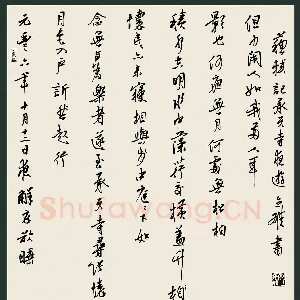 元豐六年十月十二日夜解衣欲睡
月色入户欣然起行
念無与爲樂者遂至承天寺尋張懷
懷民亦未寢相與步中庭下如
積水空明水中藻荇交横蓋竹柏
影也何夜無月何處無松柏
但少閑人如我兩人耳
蘇軾記承天寺夜遊 書
Shufawang.CN